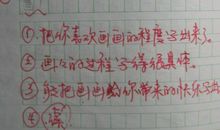 ①把你喜欢画画的程度写出来了。
②画画的过程写得很具体。
③能把画画给你带来的快乐写出
④读